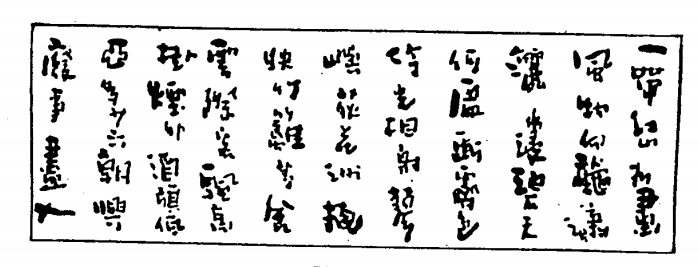 一帶江山如畫
風物向秋瀟
灑水浸碧天
何處斷霽色
冷光相射蓼
嶼荻花洲掩
映竹籬茅舍
雲際客帆高
掛煙外酒旗低
亞多少六朝興
廢事盡入